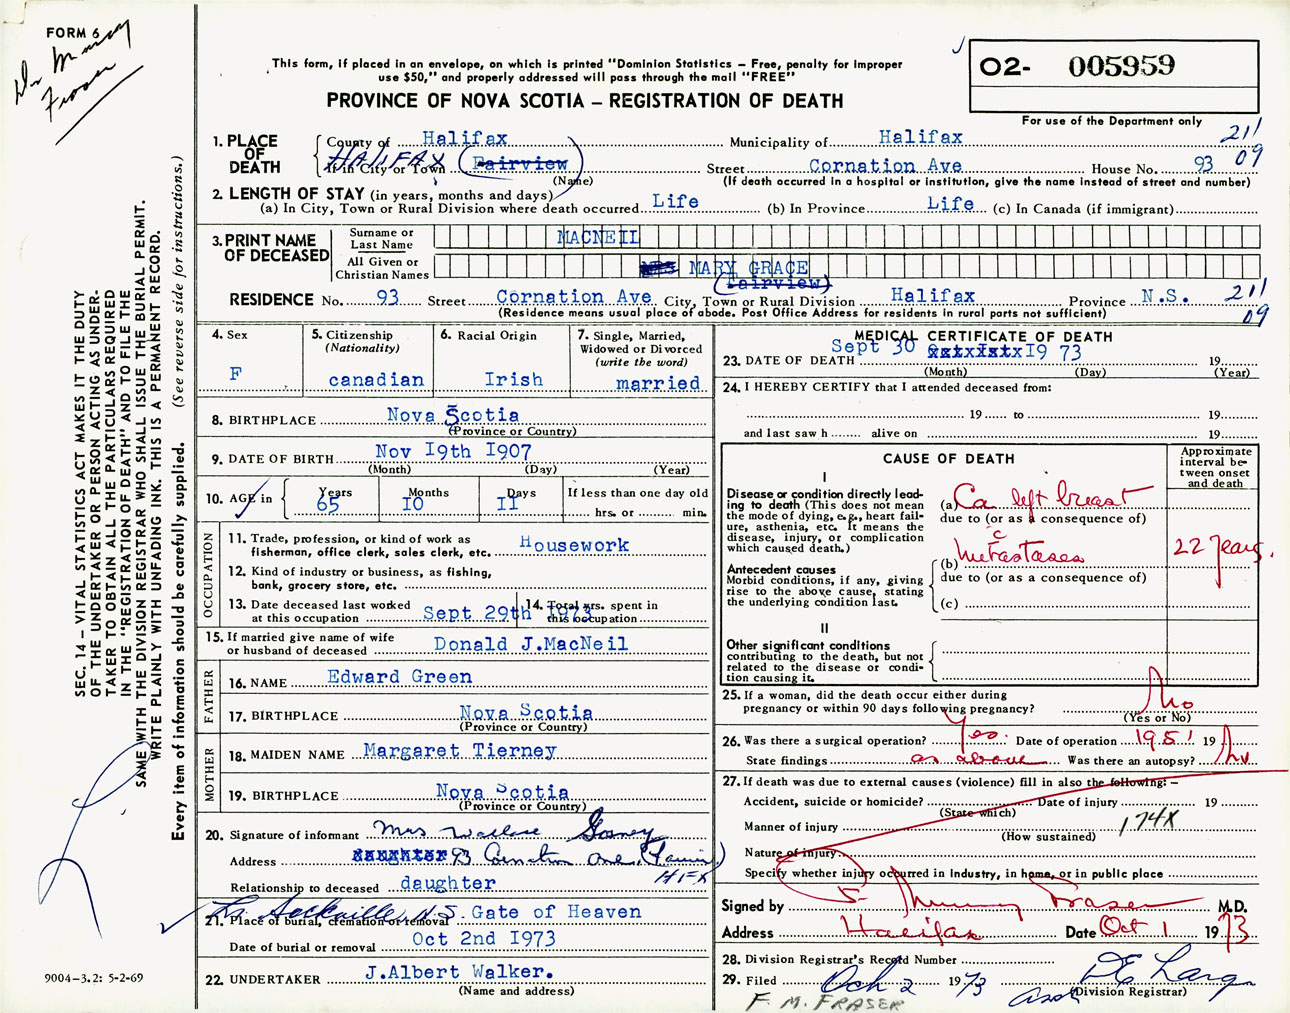 FORM 6
Dr Murray
Fraser
This form, if placed in an envelope, on which is printed "Dominion Statistics – Free, penalty for improper
use $50," and properly addressed will pass through the mail "FREE"
PROVINCE OF NOVA SCOTIA – REGISTRATION OF DEATH
O2- 005959
For use of the Department only
211
09
1. PLACE OF DEATH
County of Halifax Municipality of Halifax
If in City or Town HALIFAX (Fairview) Street Cornation Ave House No. 93
(Name) (If death occurred in a hospital or institution, give the name instead of street and number)
2. LENGTH OF STAY (in years, months and days)
(a) In City, Town or Rural Division where death occurred Life (b) In Province Life (c) In Canada (if immigrant)
3. PRINT NAME OF DECEASED
Surname or Last Name MACNEIL
All Given or Christian Names MRS MARY GRACE
(Fairview)
RESIDENCE No. 93 Street Cornation Ave City, Town or Rural Division Halifax Province N.S. 211
09
(Residence means usual place of abode. Post Office Address for residents in rural parts not sufficient)
4. Sex
F
5. Citizenship
(Nationality)
canadian
6. Racial Origin
Irish
7. Single, Married,
Widowed or Divorced
(write the word)
married
8. BIRTHPLACE Nova Scotia
(Province or Country)
9. DATE OF BIRTH Nov I9th I907
(Month) (Day) (Year)
10. AGE in
Years 65
Months IO
Days II
If less than one day old
hrs. or min.
OCCUPATION
11. Trade, profession, or kind of work as
fisherman, office clerk, sales clerk, etc. Housework
12. Kind of industry or business, as fishing,
bank, grocery store, etc.
13. Date deceased last worked
at this occupation Sept 29th I973
14. Total yrs. spent in
this occupation
15. If married give name of wife
or husband of deceased Donald J.MacNeil
FATHER
16. NAME Edward Green
17. BIRTHPLACE Nova Scotia
(Province or Country)
MOTHER
18. MAIDEN NAME Margaret Tierney
19. BIRTHPLACE Nova Scotia
(Province or Country)
20. Signature of informant Mrs Wallace
Address daughter 93 Cornation Ave.
HFX
Relationship to deceased daughter
L. Sackville, N.S. Gate of Heaven
21. Place of burial, cremation or removal
Date of burial or removal Oct 2nd I973
22. UNDERTAKER J.Albert Walker.
(Name and address)
MEDICAL CERTIFICATE OF DEATH
23. DATE OF DEATH Sept 30 I9 73 19
(Month) (Day) (Year)
24. I HEREBY CERTIFY that I attended deceased from:
19 to 19
and last saw h alive on 19
CAUSE OF DEATH
Approximate
interval be-
tween onset
and death
I
Disease or condition directly lead-
ing to death (This does not mean
the mode of dying, e.g., heart fail-
ure, asthenia, etc. It means the
disease, injury, or complication
which caused death.)
(a) Ca left breast
due to (or as a consequence of)
c
(b) metastases
22 years.
due to (or as a consequence of)
(c)
Antecedent causes
Morbid conditions, if any, giving
rise to the above cause, stating
the underlying condition last.
II
Other significant conditions
contributing to the death, but not
related to the disease or condi-
tion causing it.
25. If a woman, did the death occur either during
pregnancy or within 90 days following pregnancy? No
(Yes or No)
26. Was there a surgical operation? Yes. Date of operation 1951 19
State findings as above Was there an autopsy? No
27. If death was due to external causes (violence) fill in also the following: –
Accident, suicide or homicide? Date of injury 19
(State which)
Manner of injury 174X
(How sustained)
Nature of injury
Specify whether injury occurred in Industry, in home, or in public place
Signed by F. Murray Fraser M.D.
Address Halifax Date Oct 1 1973
28. Division Registrar's Record Number
29. Filed Oct 2 1973 D E Lang
(Division Registrar)
F. M. FRASER
SEC. 14 – VITAL STATISTICS ACT MAKES IT THE DUTY
OF THE UNDERTAKER OR PERSON ACTING AS UNDER-
TAKER TO OBTAIN ALL THE PARTICULARS REQUIRED
IN THE "REGISTRATION OF DEATH" AND TO FILE THE
SAME WITH THE DIVISION REGISTRAR WHO SHALL ISSUE THE BURIAL PERMIT.
WRITE PLAINLY WITH UNFADING INK. THIS IS A PERMANENT RECORD.
Every item of information should be carefully supplied. (See reverse side for instructions.)
9004-3.2: 5-2-69